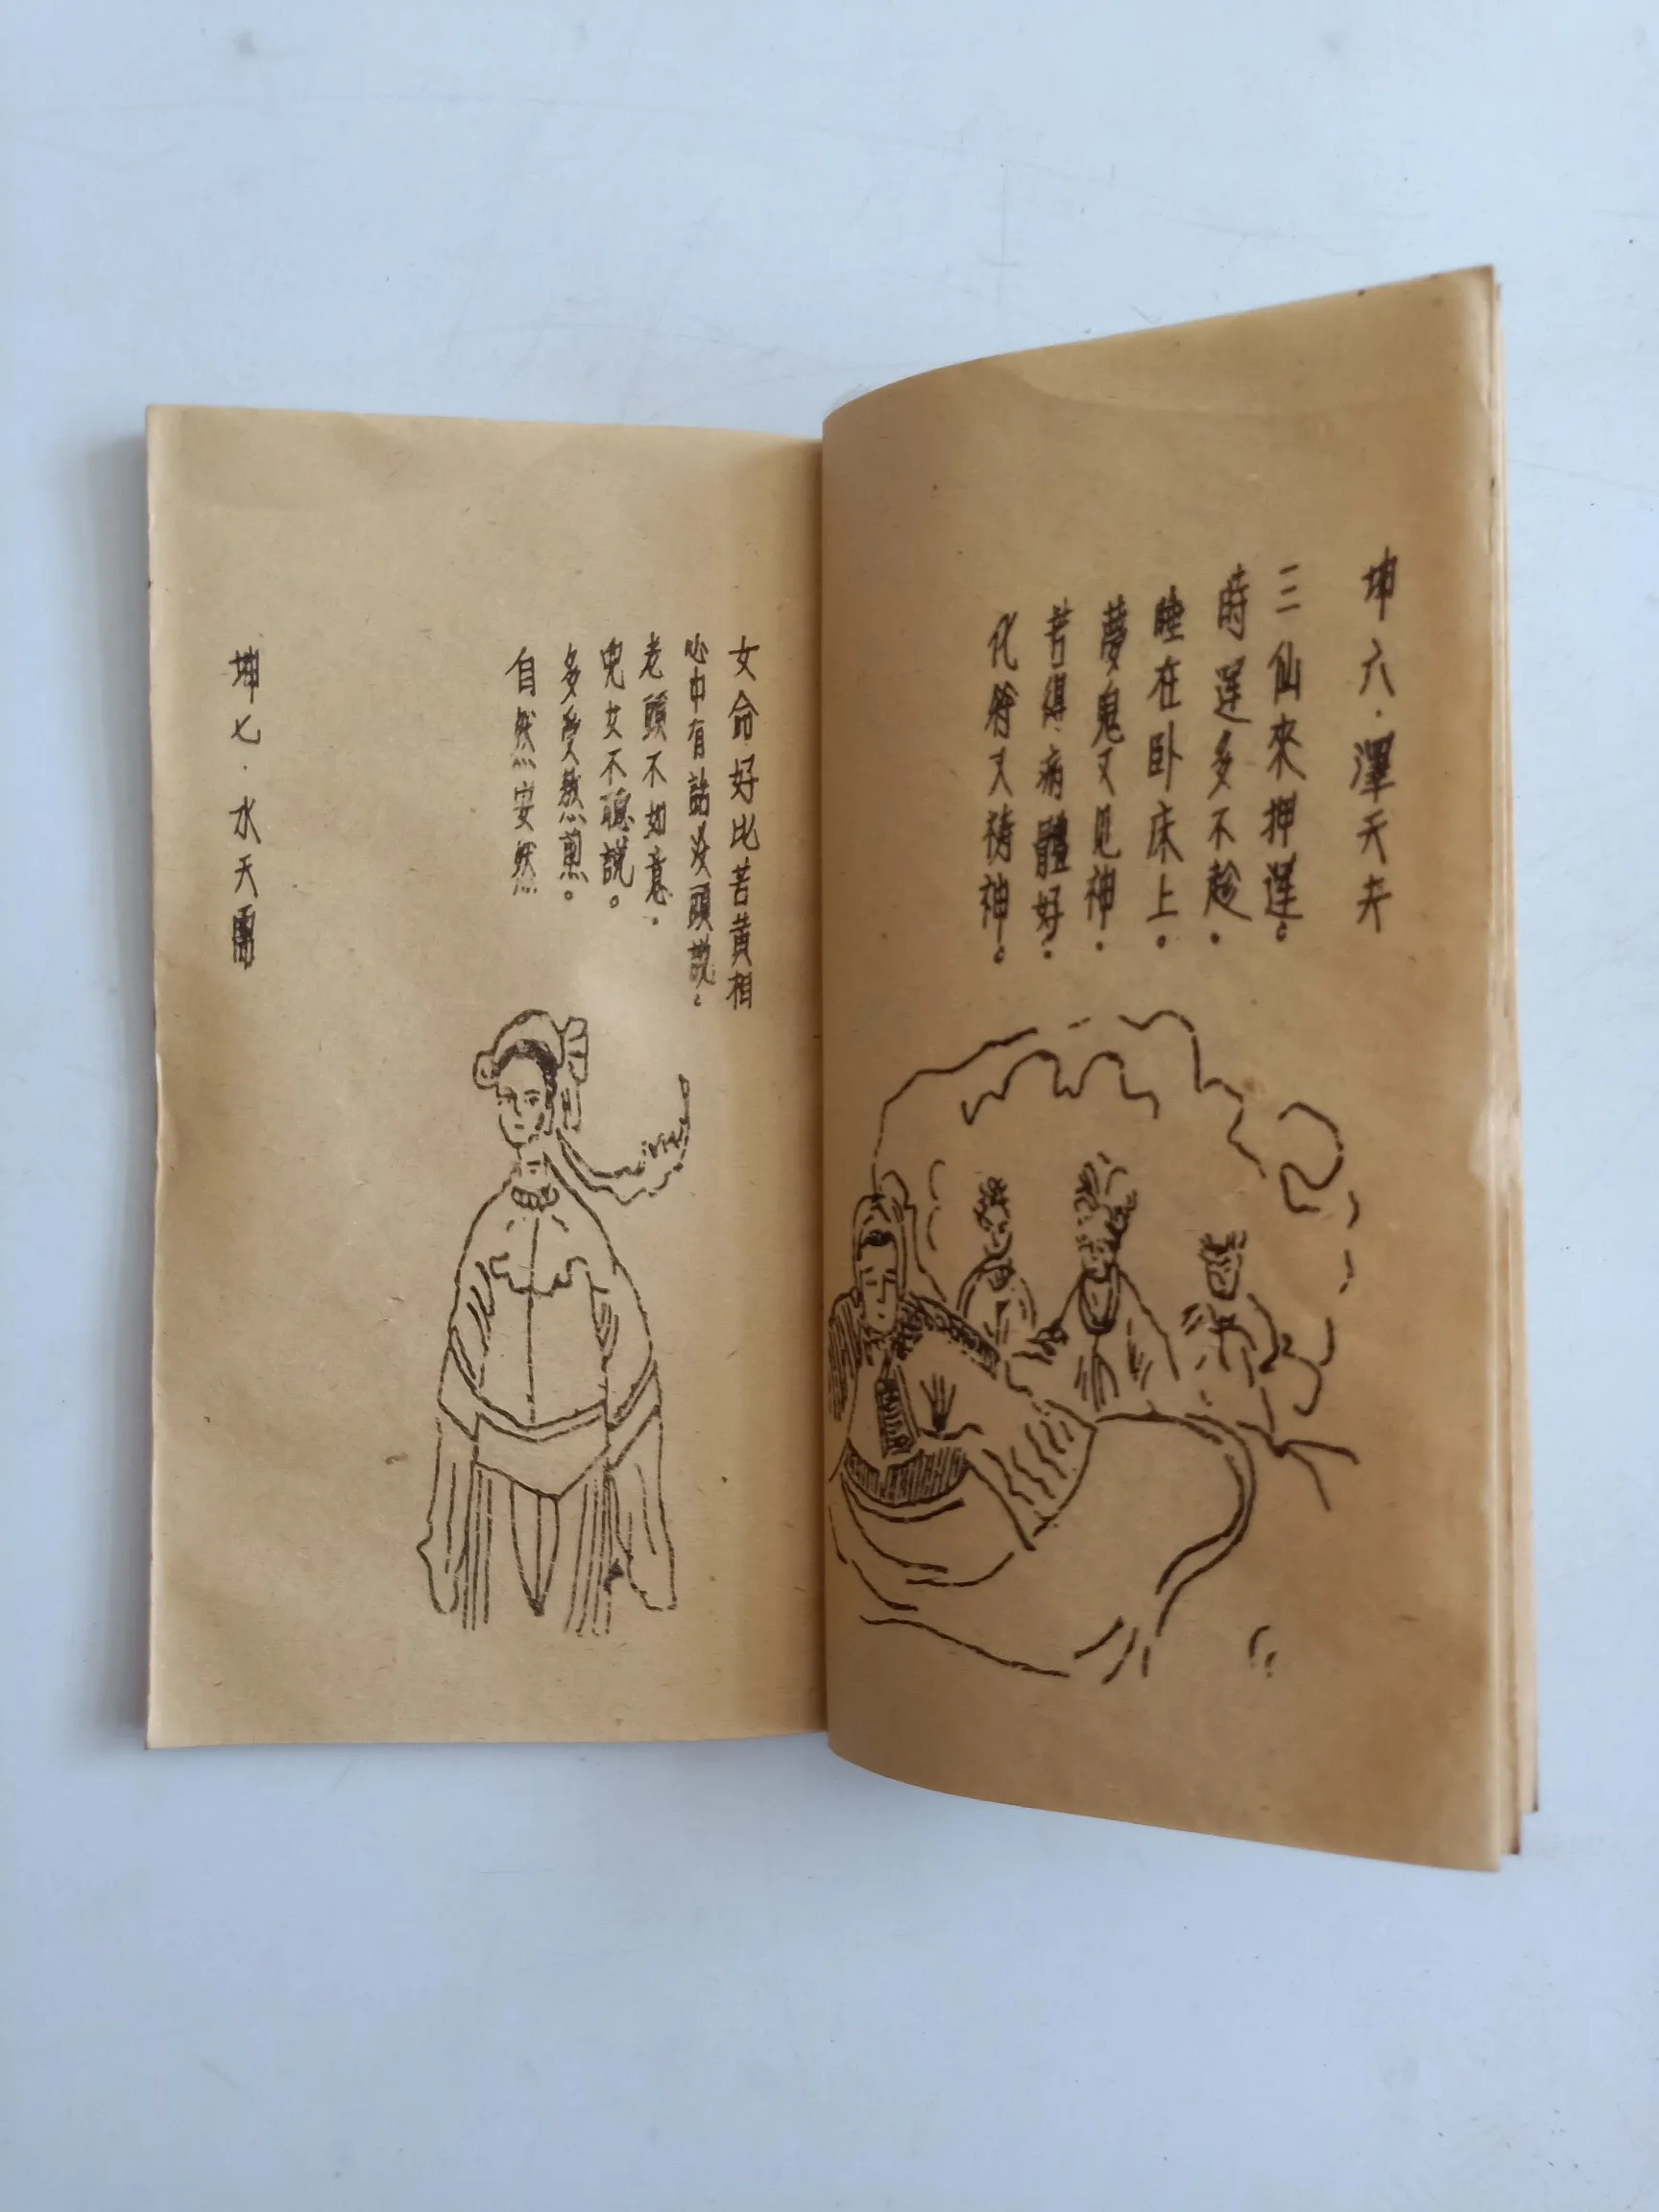 坤六．澤天夬
三仙來押運。
時運多不趁．
睡在卧床上。
夢鬼又见神．
若得病體好．
化符又禱神。
女命好比苦黄相
心中有話没頭説。
老頭不如意．
兒女不聽説。
多受熬煎。
自然安然
坤七．水天需